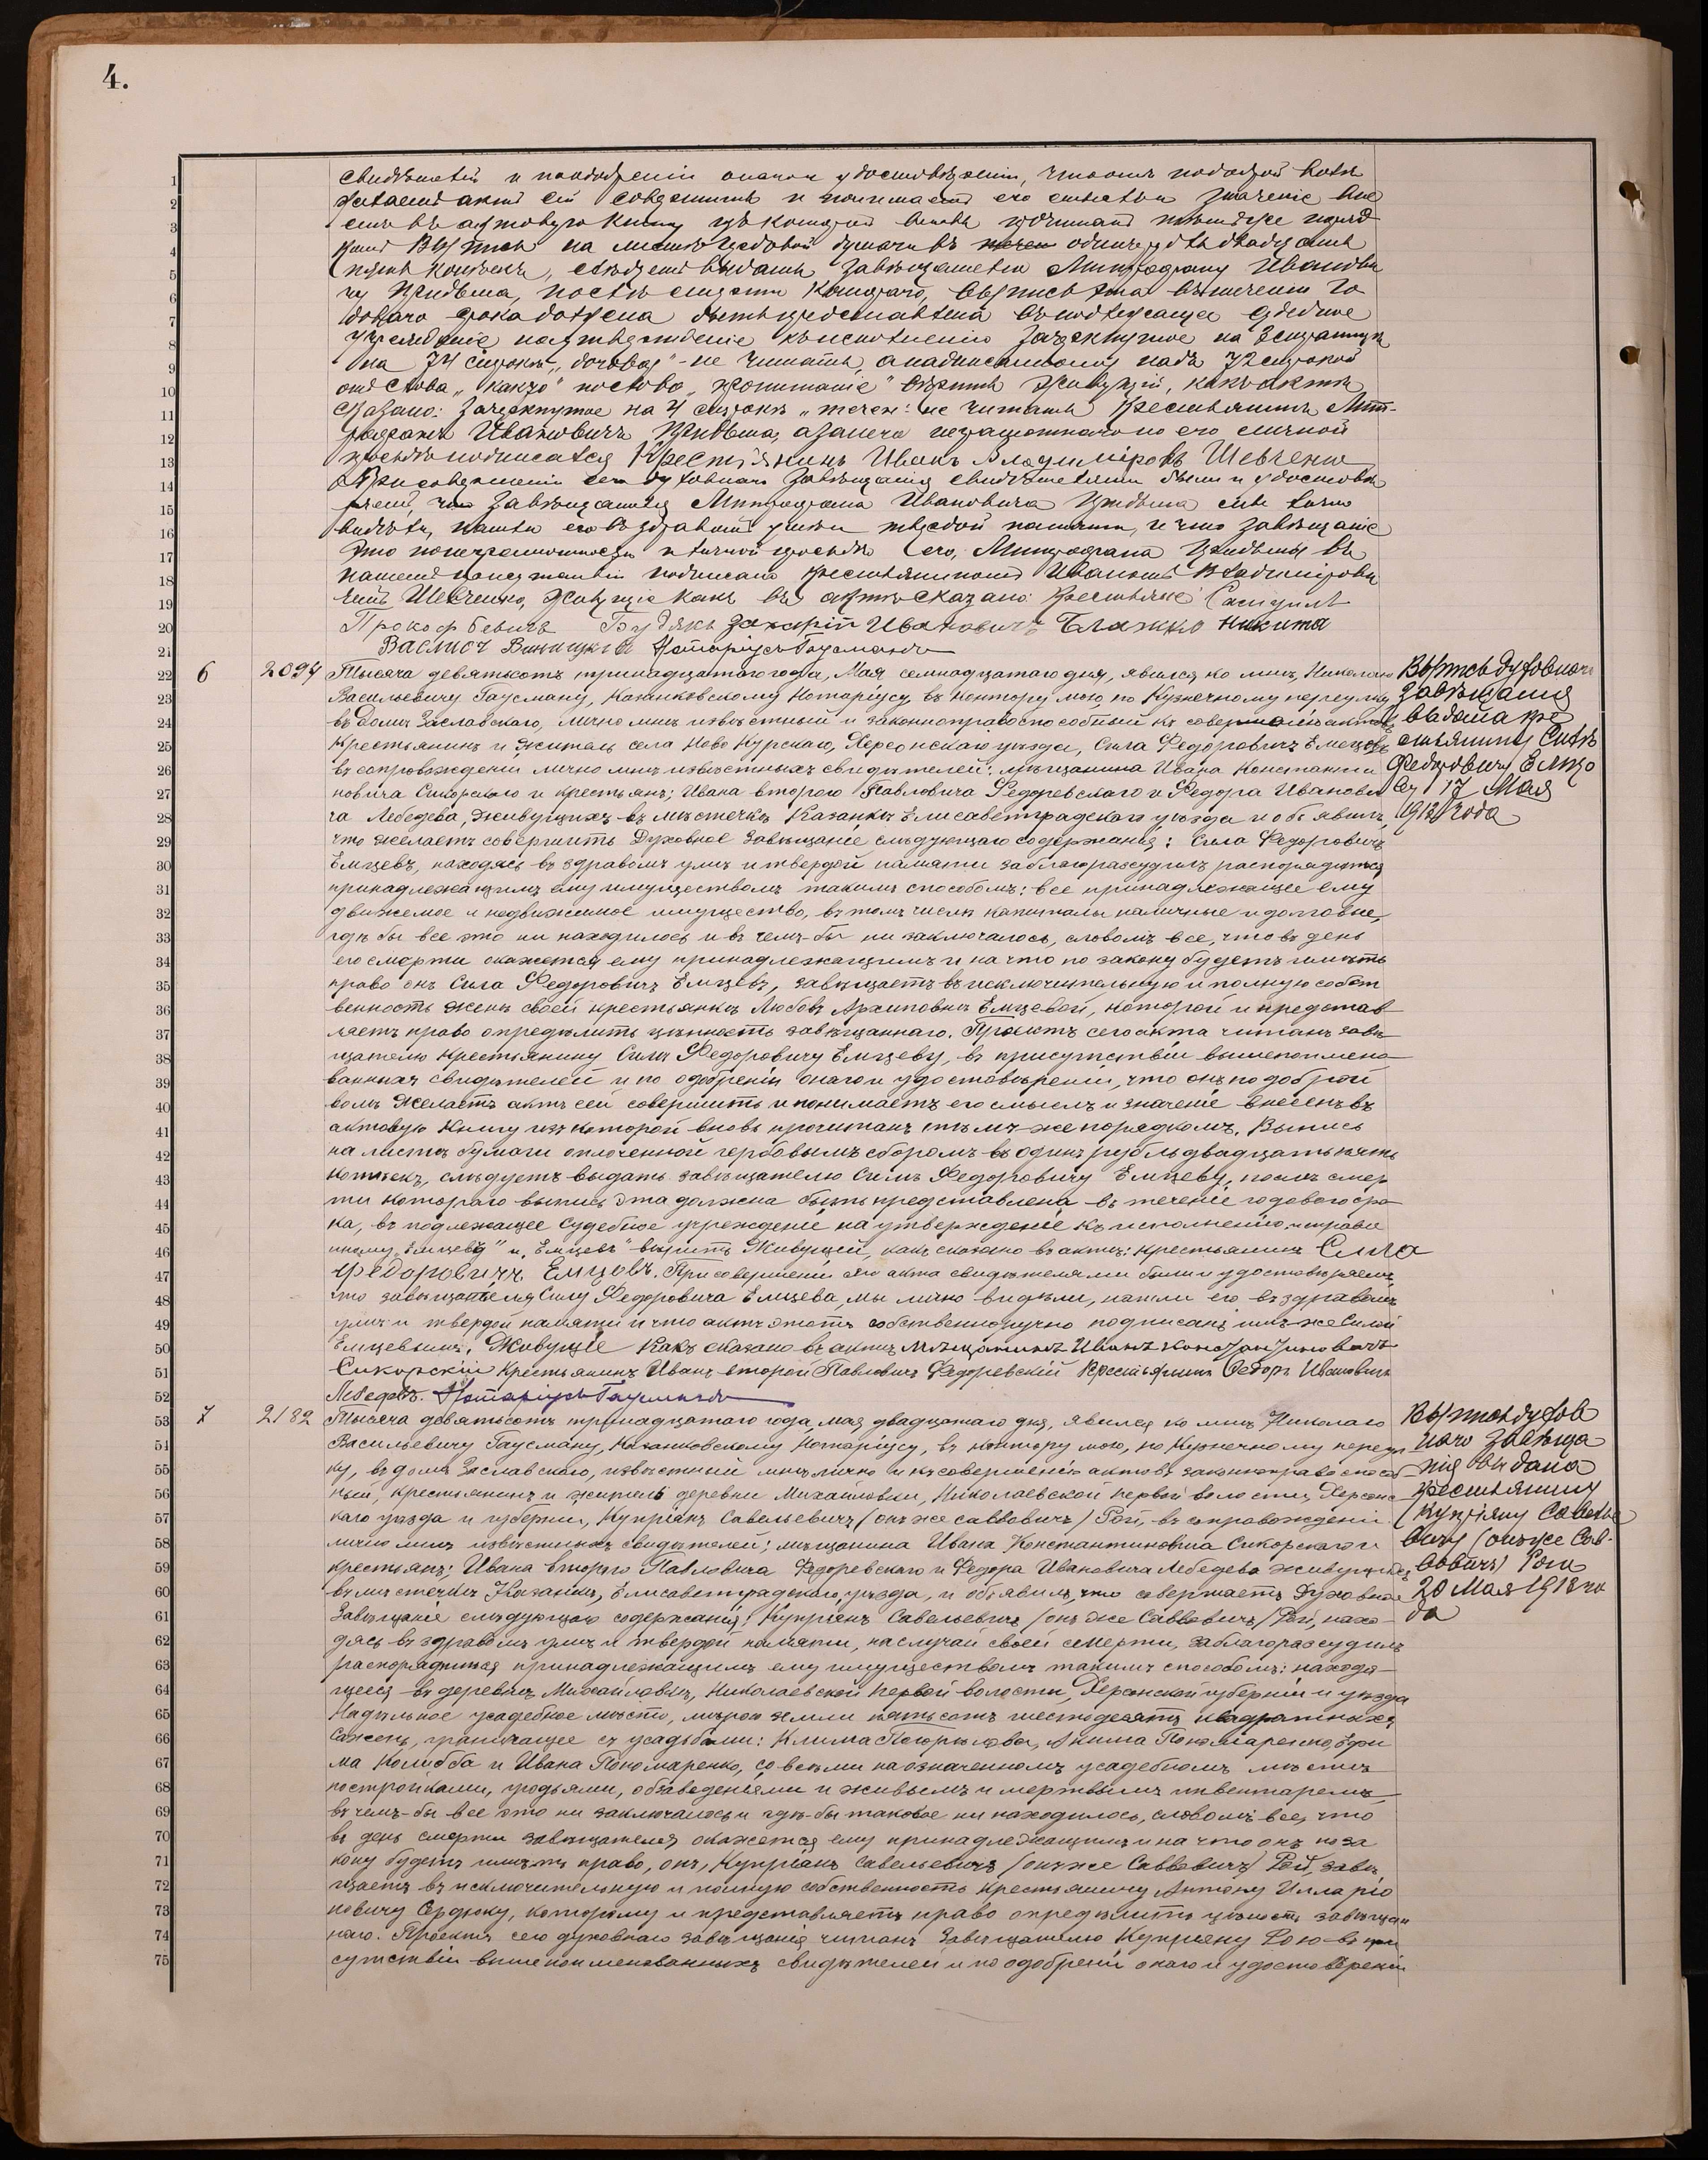 4.
свидѣтелей и по одобреніи онаго и удостовѣреніи, что онъ по доброй волѣ
желаетъ актъ сей совершить и понимаетъ его смыслъ и значеніе вне
сенъ въ актовую книгу изъ которой вновь прочитанъ тѣмъ же поряд
комъ Выпись на листѣ гербовой бумаги въ одинъ рубль двадцать
пять копѣекъ, слѣдуетъ выдать завѣщателю Митрофану Иванови
чу после смерти котораго, выпись эта въ теченіи го
доваго срока должна быть представлена въ подлежащее судебное
учрежденіе на утвержденіе къ исполненію Зачеркнутое на 3 страницѣ
на 74 строкѣ „договоръ" - не читать, а надписанному надъ 72 строкой
отъ слова по слово „пониманіе" вѣрить Живущій, какъ въ актѣ
сказано: Зачеркнутое на 4 строкѣ „течен: не читать Крестьянинъ Мит-
рофанъ Ивановичъ а за него неграмотнаго по его личной
просьбѣ подписался Крестьянинъ Иванъ Владиміровъ Шевченко
При совершеніи сего духовнаго завѣщанія свидѣтелями были и удостовѣ
ряемъ, что завѣщателя Митрофана Ивановича мы лично
видѣли, нашли его въ здравомъ умѣ и твердой памяти, и что завѣщаніе
это по неграмотности и личной просьбѣ его, Митрофана въ
нашемъ присутствіи подписано крестьяниномъ Иваномъ Владимірови
чемъ Шевченко, Живущіе какъ въ актѣ сказано: Крестьяне: Самуилъ
Прокофьевичъ Гудякъ Захарій Ивановичъ Блажко Никита
Нотаріусъ Гаусманъ
6 2094 Тысяча девятьсотъ тринадцатаго года, Мая семнадцатаго дня, явился ко мнѣ, Николаю
Васильевичу Гаусману, Казанковскому Нотаріусу, въ контору мою, по Кузнечному переулку
въ домѣ Заславскаго, лично мнѣ извѣстный и законноправоспособный къ совершенію актовъ
крестьянинъ и житель села Ново Курскаго, Херсонскаго уѣзда, Сила Федоровичъ Емцевъ
въ сопровожденіи лично мнѣ извѣстныхъ свидѣтелей: мѣщанина Ивана Константи
новича Сикорскаго и крестьянъ; Ивана второго Павловича Федоревскаго и Федора Иванови
ча Лебедева, живущихъ въ мѣстечкѣ Казанкѣ Елисаветградскаго уѣзда и объявилъ,
что желаетъ совершить Духовное Завѣщаніе слѣдующаго содержанія: Сила Федоровичъ
Емцевъ, находясь въ здравомъ умѣ и твердой памяти заблагоразсудилъ распорядиться
принадлежащимъ ему имуществомъ такимъ способомъ: все принадлежащее ему
движемое и недвижимое имущество, въ томъ числѣ капиталы наличные и долговые,
гдѣ бы все это ни находилось и въ чемъ-бы ни заключалось, словомъ все, что въ день
его смерти окажется ему принадлежащимъ и на что по закону будетъ имѣть
право онъ Сила Федоровичъ Емцевъ, завѣщаетъ въ исключительную и полную собст
венность женѣ своей крестьянкѣ Любови Архиповнѣ Емцевой, которой и предстов
ляетъ право опредѣлить цѣнность завѣщаннаго. Проэктъ сего акта читанъ завѣ
щателю крестьянину Силѣ Федоровичу Емцеву, въ присутствіи вышепоимено
ванныхъ свидѣтелей и по одобреніи онаго и удостовѣреніи, что онъ по доброй
волѣ желаетъ актъ сей совершить и понимаетъ его смыслъ и значеніе внесенъ въ
актовую книгу изъ которой вновь прочитанъ тѣмъ-же порядкомъ. Выпись
на листѣ бумаги оплоченной гербовымъ сборомъ въ одинъ рубль двадцать пять
копѣекъ, слѣдуетъ выдать завѣщателю Силѣ Федоровичу Емцеву, послѣ смер
ти котораго выпись эта должна быть представлена въ теченіе годового сро
ка, въ подлежащее судебное учрежденіе на утвержденіе къ исполненію. исправле
нному „Емцеву" и „Емцевъ" вѣрить Живущей, какъ сказано въ актѣ: крестьянинъ Сила
Федоровичъ Емцовъ. При совершеніи сего акта свидѣтелями были и удостовѣряемъ,
что завѣщателя Силу Федоровича Емцева, мы лично видѣли, нашли его въ здравомъ
умѣ и твердой памяти и что актъ этотъ собственноручно подписанъ имъ же Силой
Емцевымъ. Живущіе какъ сказано въ актѣ мѣщанинъ Иванъ Константиновичъ
Сикорскій Крестьянинъ Иванъ второй Павловичъ Федоревскій Крестьянинъ Федоръ Ивановичъ
Лебедевъ. Нотаріусъ Гаусманъ
Выпись духовнаго
завѣщанія
выдана кре
стьянину Силѣ
Федоровичу Емцо
ву 17 Мая
1913 года
7 2182 Тысяча девятьсотъ тринадцатаго года, мая двадцатаго дня, явился ко мнѣ Николаю
Васильевичу Гаусману, Казанковскому Нотаріусу, въ контору мою, по Кузнечному переул
ку, въ домѣ Заславскаго, извѣстный мнѣ лично и къ совершенію актовъ законноправоспособ
ный, крестьянинъ и житель деревни Михайловки, Николаевской первой волости, Херсонс
каго уѣзда и губерніи, Купріянъ Савельевичъ (онъ же Саввовичъ) Рой, въ сопровожденіи
лично мнѣ извѣстныхъ свидѣтелей; мѣщанина Ивана Константиновича Сикорскаго и
крестьянъ; Ивана второго Павловича Федоревскаго и Федора Ивановича Лебедева живущихъ
въ мѣстечкѣ Казанкѣ, Елисаветградскаго уѣзда, и объявилъ, что совершаетъ Духовное
Завѣщаніе слѣдующаго содержанія: Купріянъ Савельевичъ (онъ же Саввовичъ) Рой, нахо-
дясь въ здравомъ умѣ и твердой памяти, на случай своей смерти, заблагоразсудилъ
распорядиться принадлежащимъ ему имуществомъ такимъ способомъ: находя-
щееся въ деревнѣ Михайловкѣ, Николаевской первой волости, Херсонской губерніи и уѣзда
надѣльное усадебное мѣсто, мѣрою земли пятьсотъ шестьдесятъ квадратныхъ
сажень, граничащее съ усадьбами: Клима Акима Пономаренко, Ефи
ма Колибба и Ивана Пономаренко, со всѣми на означенномъ усадебномъ мѣстѣ
постройками, угодьями, обзаведеніями и живымъ и мертвымъ инвентаремъ,
въ чемъ-бы все это ни заключалось и гдѣ-бы таковое ни находилось, словомъ все, что
въ день смерти завѣщателя окажется ему принадлежащимъ и на что онъ по за
кону будетъ имѣть право, онъ, Купріянъ Савельевичъ (онъ же Саввовичъ) Рой, завѣ
щаетъ въ исключительную и полную собственность крестьянину Антону Илларіо
новичу Сердюку, которому и представляетъ право опредѣлить цѣнность завѣщан
наго. Проектъ сего духовнаго завѣщанія читанъ Завѣщателю Купріяну Рою въ при
сутствіи вышепоименованныхъ свидѣтелей и по одобреніи онаго и удостовѣреніи
Выпись духов
наго завѣща
нія выдана
крестьянину
Купріяну Савелье
вичу (онъ же Сав-
вовичъ) Рою
20 Мая 1913 го
да
1
2
3
4
5
6
7
8
9
10
11
12
13
14
15
16
17
18
19
20
21
22
23
24
25
26
27
28
29
30
31
32
33
34
35
36
37
38
39
40
41
42
43
44
45
46
47
48
49
50
51
52
53
54
55
56
57
58
59
60
61
62
63
64
65
66
67
68
69
70
71
72
73
74
75